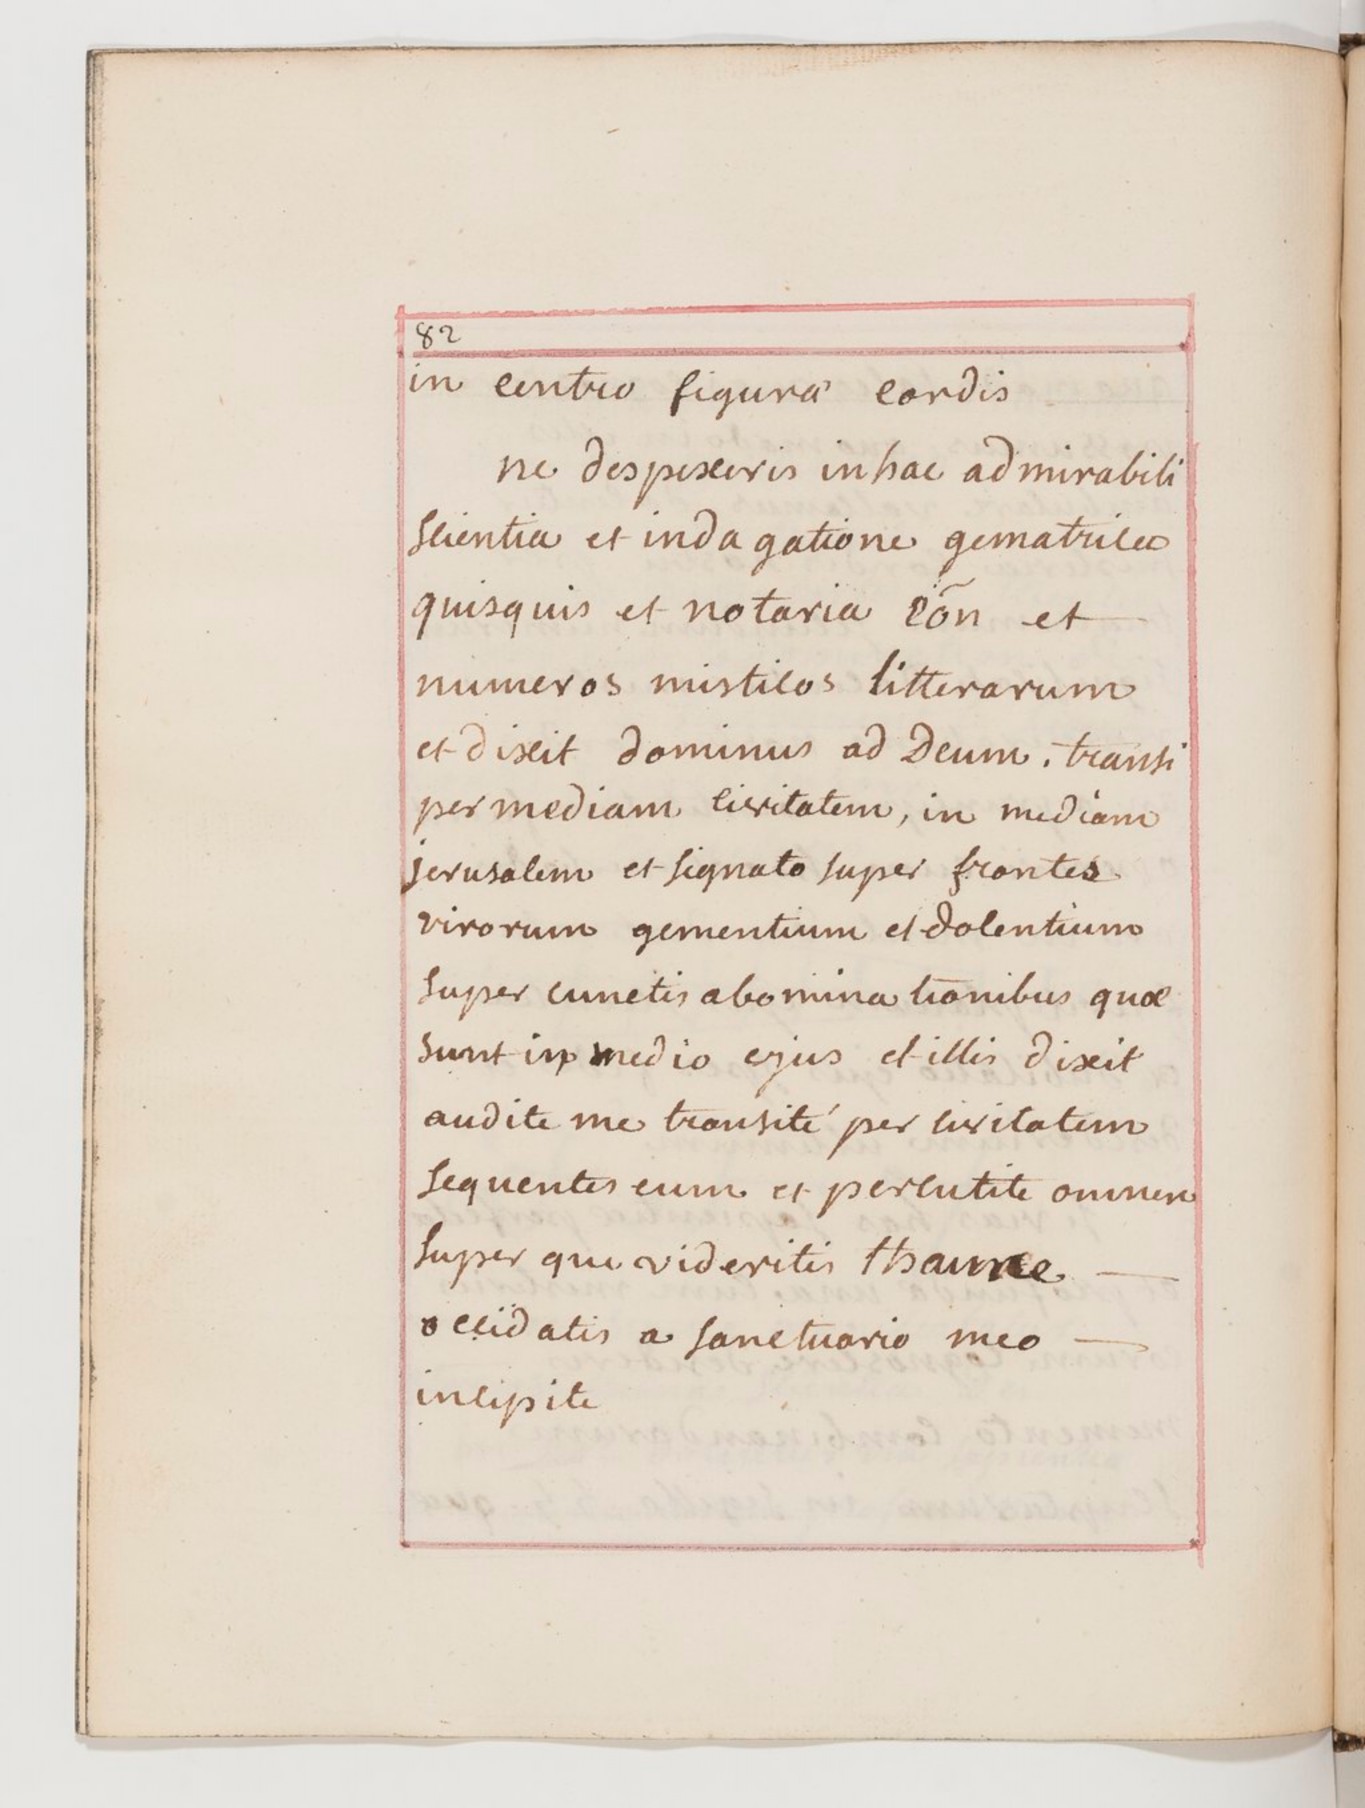 82
in centro figura cordis
ne despexeris in hac admirabili
scientia et inda gatione gematrica
quisquis et notaria cõn et
numeros misticos litterarum
et dixit dominus ad Deum. transi
per mediam civitatem, in mediam
jerusalem et signato super frontes
virorum gementium et dolentium
super cunctis abominationibus quæ
sunt in medio ejus et illis dixit
audite me transité per civitatem
sequentes eum et percutite omnem
super que videritis thaume
occidatis a sanctuario meo
incipite